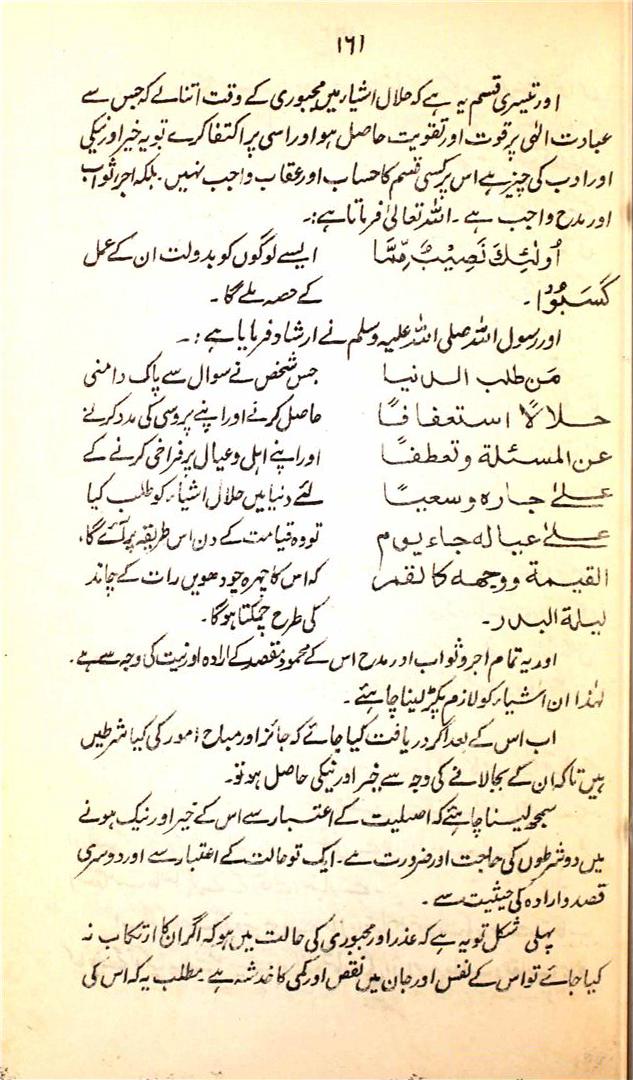 ۱۶۱
اور تیسری قسم یہ ہے کہ حلال اشیاء میں مجبوری کے وقت اتنا لے کہ جس سے
عبادت الٰہی پر قوت اور تقویت حاصل ہو اور اسی پر اکتفا کرے تو یہ خیر اور نیکی
اور ادب کی چیز ہے اس پر کسی قسم کا حساب اور عقاب واجب نہیں۔ بلکہ اجر و ثواب
اور مدح واجب ہے۔ اللہ تعالیٰ فرماتا ہے:۔
اُولٰئِكَ نَصِيْبٌ مِّمَّا
كَسَبُوْا۔
ایسے لوگوں کو بدولت ان کے عمل
کے حصہ ملے گا۔
اور رسول اللہ صلی اللہ علیہ وسلم نے ارشاد فرمایا ہے:۔
مَن طلب الدنيا
حلالًا استعفافًا
عن المسئلة وتعطفًا
علىٰ جاره وسعيًا
علىٰ عياله جاء يوم
القيمة ووجهه كالقمر
ليلة البدر۔
جس شخص نے سوال سے پاک دامنی
حاصل کرنے اور اپنے پروسی کی مدد کرنے
اور اپنے اہل و عیال پر فراخی کرنے کے
لئے دنیا میں حلال اشیاء کو طلب کیا
تو وہ قیامت کے دن اس طریقہ پر آئے گا،
کہ اس کا چہرہ چودھویں رات کے چاند
کی طرح چمکتا ہوگا۔
اور یہ تمام اجر و ثواب اور مدح اس کے محمود مقصد کے ارادہ اور نیت کی وجہ سے ہے۔
لہٰذا ان اشیاء کو لازم پکڑ لینا چاہئے۔
اب اس کے بعد اگر دریافت کیا جائے کہ جائز اور مباح امور کی کیا شرطیں
ہیں تاکہ ان کے بجالانے کی وجہ سے خیر اور نیکی حاصل ہو تو۔
سمجھ لینا چاہئے کہ اصلیت کے اعتبار سے اس کے خیر اور نیک ہونے
میں دو شرطوں کی حاجت اور ضرورت ہے۔ ایک تو حالت کے اعتبار سے اور دوسری
قصد و ارادہ کی حیثیت سے۔
پہلی شکل تو یہ ہے کہ عذر اور مجبوری کی حالت میں ہو کہ اگر ان کا ارتکاب نہ
کیا جائے تو اس کے نفس اور جان میں نقص اور کمی کا خدشہ ہے۔ مطلب یہ کہ اس کی